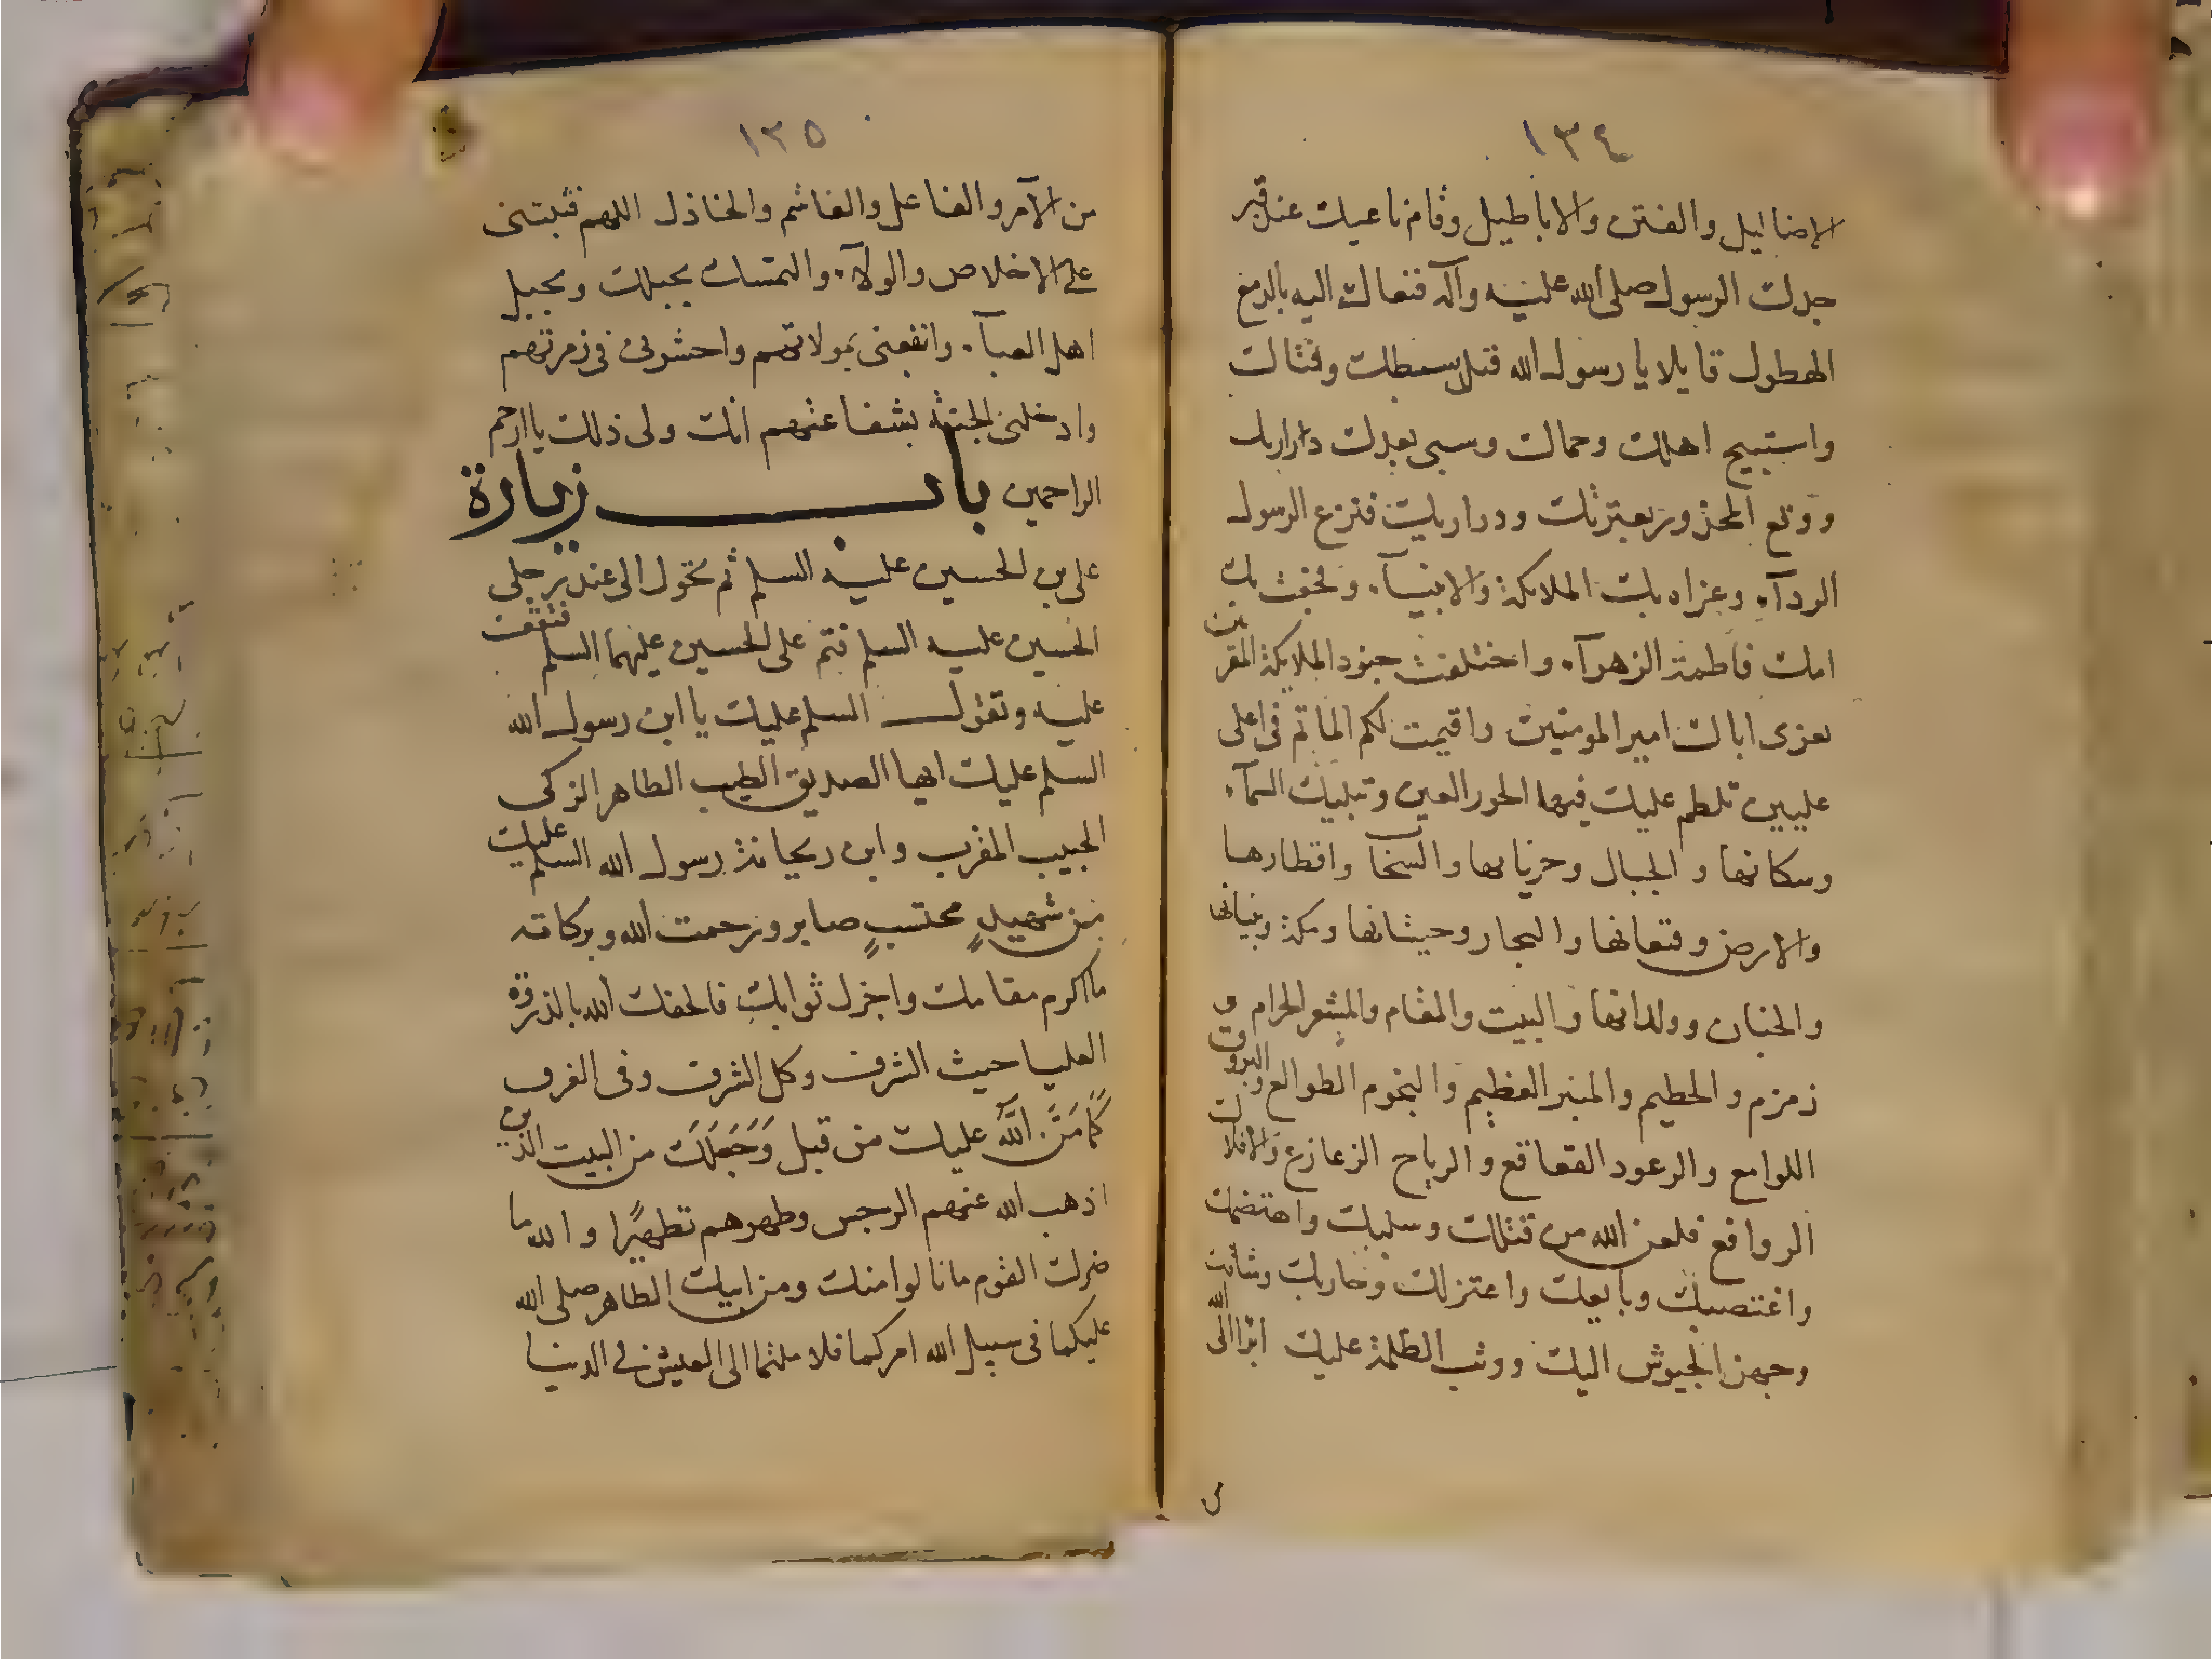 ١٣٤
الاضاليل والفتن والاباطيل وقام ناعيك عند قبر
جدك الرسول صلى الله عليه وآله فنعاك اليه بالدمع
الهطول قايلا يا رسول الله قتل سبطك وفتاك
واستبيح اهلك وحماك وسبى بعدك ذراريك
ووقع المحذور بعترتك وذراريك فنزع الرسول
الردآء وعزاه بك الملائكة والانبيآء وفجعت بك
امك فاطمة الزهرآء واختلفت جنود الملائكة المقربين
تعزى اباك امير المومنين واقيمت لكم الماتم فى اعلى
عليين تلطم عليك فيها الحور العين وتبكيك السمآء
وسكانها والجبال وخزانها والسحاب واقطارها
والارض وقيعانها والبحار وحيتانها ومكة وبنيانها
والجنان وولدانها والبيت والمقام والمشعر الحرام و
زمزم والحطيم والمنبر العظيم والنجوم الطوالع والبروق
اللوامع والرعود القعاقع والرياح الزعازع والافلاك
الروافع فلعن الله من قتلك وسلبك واهتضمك
واغتصبك وبايعك واعتزلك وحاربك وساقك
وجهز الجيوش اليك ووثب الظلمة عليك ابرا الى الله
١٣٥
من الآمر والفاعل والغاشم والخاذل اللهم فثبتنى
على الاخلاص والولآء والتمسك بحبلك وبحبل
اهل العبآء وانفعنى بمولاتهم واحشرنى فى زمرتهم
وادخلنى الجنة بشفاعتهم انك ولى ذلك يا ارحم
الراحمين باب زيارة
على بن الحسين عليه السلم ثم تحول الى عند رجلى
الحسين عليه السلم فثم على الحسين عليهما السلم فتقف
عليه وتقول السلم عليك يا ابن رسول الله
السلم عليك ايها الصديق الطيب الطاهر الزكى
الحبيب المقرب وابن ريحانة رسول الله السلم عليك
من شهيدٍ محتسبٍ صابر ورحمت الله وبركاته
ما اكرم مقامك واجزل ثوابك فالحقك الله بالذروة
العليا حيث الشرف وكل الشرف وفى الغرف
كَمَا مَنَّ اللَّه عليك من قبل وَجَعَلَكَ من البيت الذين
اذهب الله عنهم الرجس وطهرهم تطهيرًا والله ما
ضرك القوم ما نالوا منك ومن ابيك الطاهر صلى الله
عليكما فى سبيل الله امركما فلا ملتما الى العيش فى الدنيا